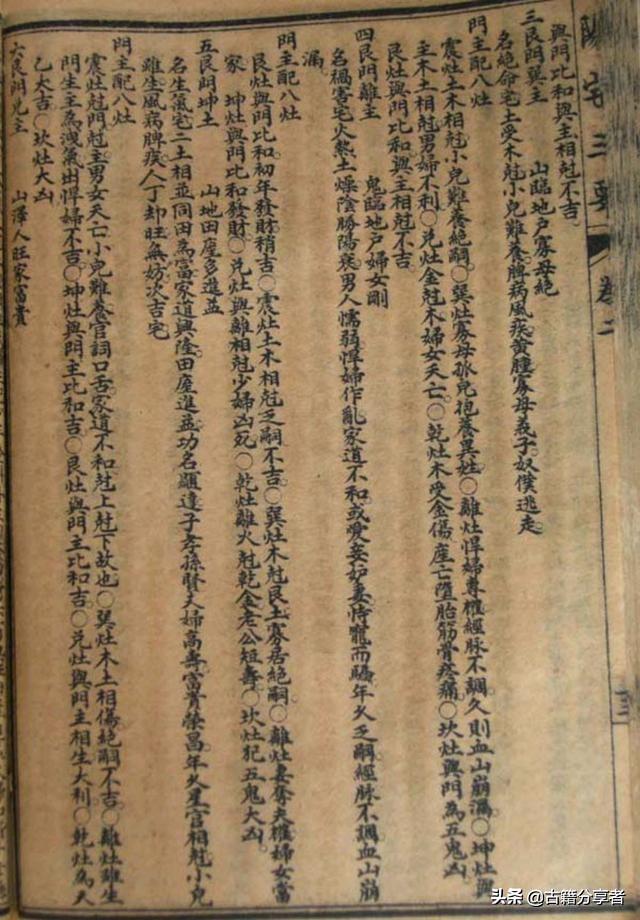 陽宅三要 卷二
與門比和與主相尅不吉
三艮門巽主 山臨地戶寡母絕
名絕命宅土受木尅小兒難養脾病風疾黃腫寡母義子奴僕逃走
門主配八灶
震灶土木相尅小兒難養絕嗣〇巽灶寡母孤兒抱養異姓〇離灶悍婦專權經脉不調久則血山崩漏〇坤灶與
主木土相尅男婦不利〇兌灶金尅木婦女夭亡〇乾灶木受金傷產亡墮胎筋骨疼痛〇坎灶與門為五鬼凶
艮灶與門比和與主相尅不吉
四艮門離主 鬼臨地戶婦女剛
名禍害宅火熱土燥陰勝陽衰男人懦弱悍婦作亂家道不和或愛妾妒妻恃寵而驕年久乏嗣經脉不調血山崩
漏
門主配八灶
艮灶與門比和初年發財稍吉〇震灶土木相尅乏嗣不吉〇巽灶木尅艮土寡居絕嗣〇離灶妻奪夫權婦女當
家 坤灶與門比和發財〇兌灶與離相尅少婦凶死〇乾灶離火尅乾金老公短壽〇坎灶犯五鬼大凶
五艮門坤土 山地田產多進益
名生氣宅二土相並同田為富家道興隆田產進益功名顯達子孝孫賢夫婦高壽富貴榮昌年久星宮相尅小兒
雖生風病脾疾人丁却旺無妨次吉宅
門主配八灶
震灶尅門尅主男女夭亡小兒難養官詞口舌家道不和尅上尅下故也〇巽灶木土相傷絕嗣不吉〇離灶雖生
門生主為洩氣出悍婦不吉〇坤灶與門主比和吉〇艮灶與門主比和吉〇兌灶與門主相生大利〇乾灶為天
乙大吉〇坎灶大凶
六艮門兌主 山澤人旺家富貴
頭条 @古籍分享者